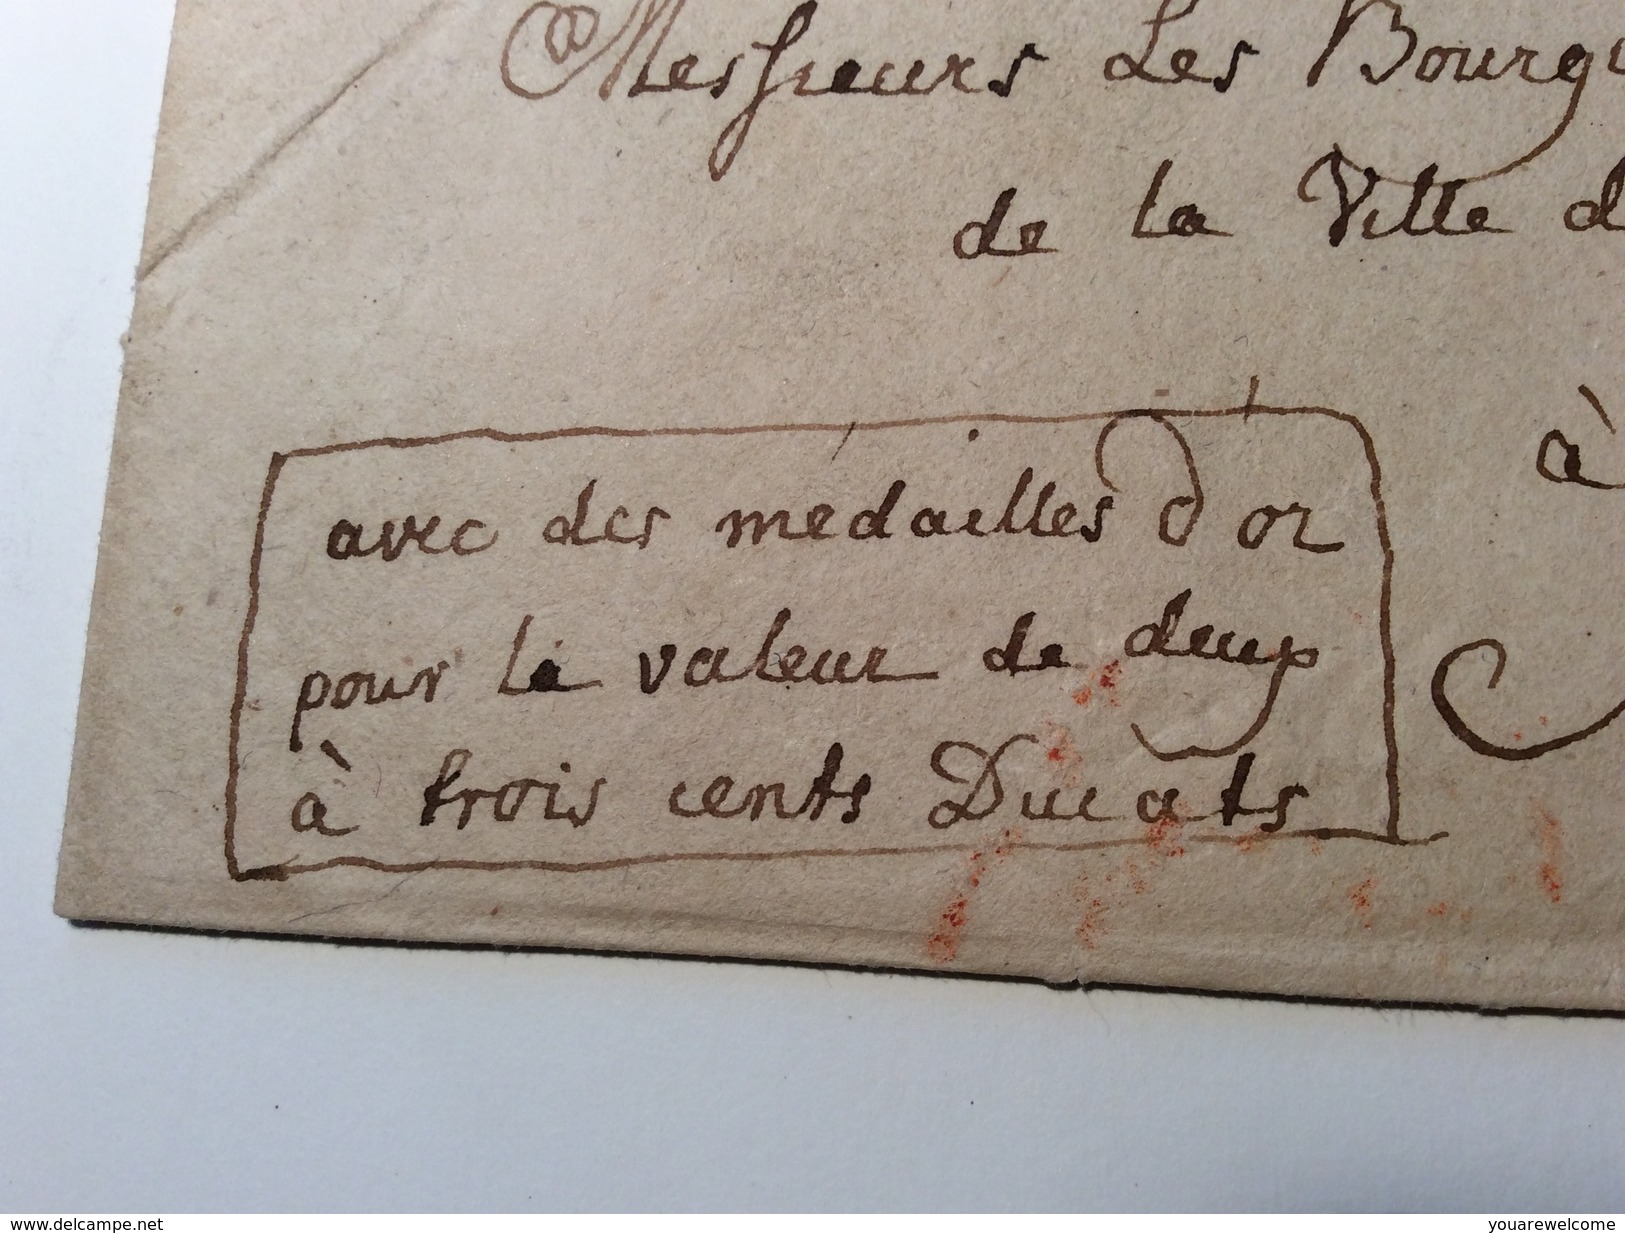 Messieurs Les Bourg
de la Ville d
à
avec des médailles d'or
pour la valeur de deux
à trois cents Ducats
www.delcampe.net
youarewelcome